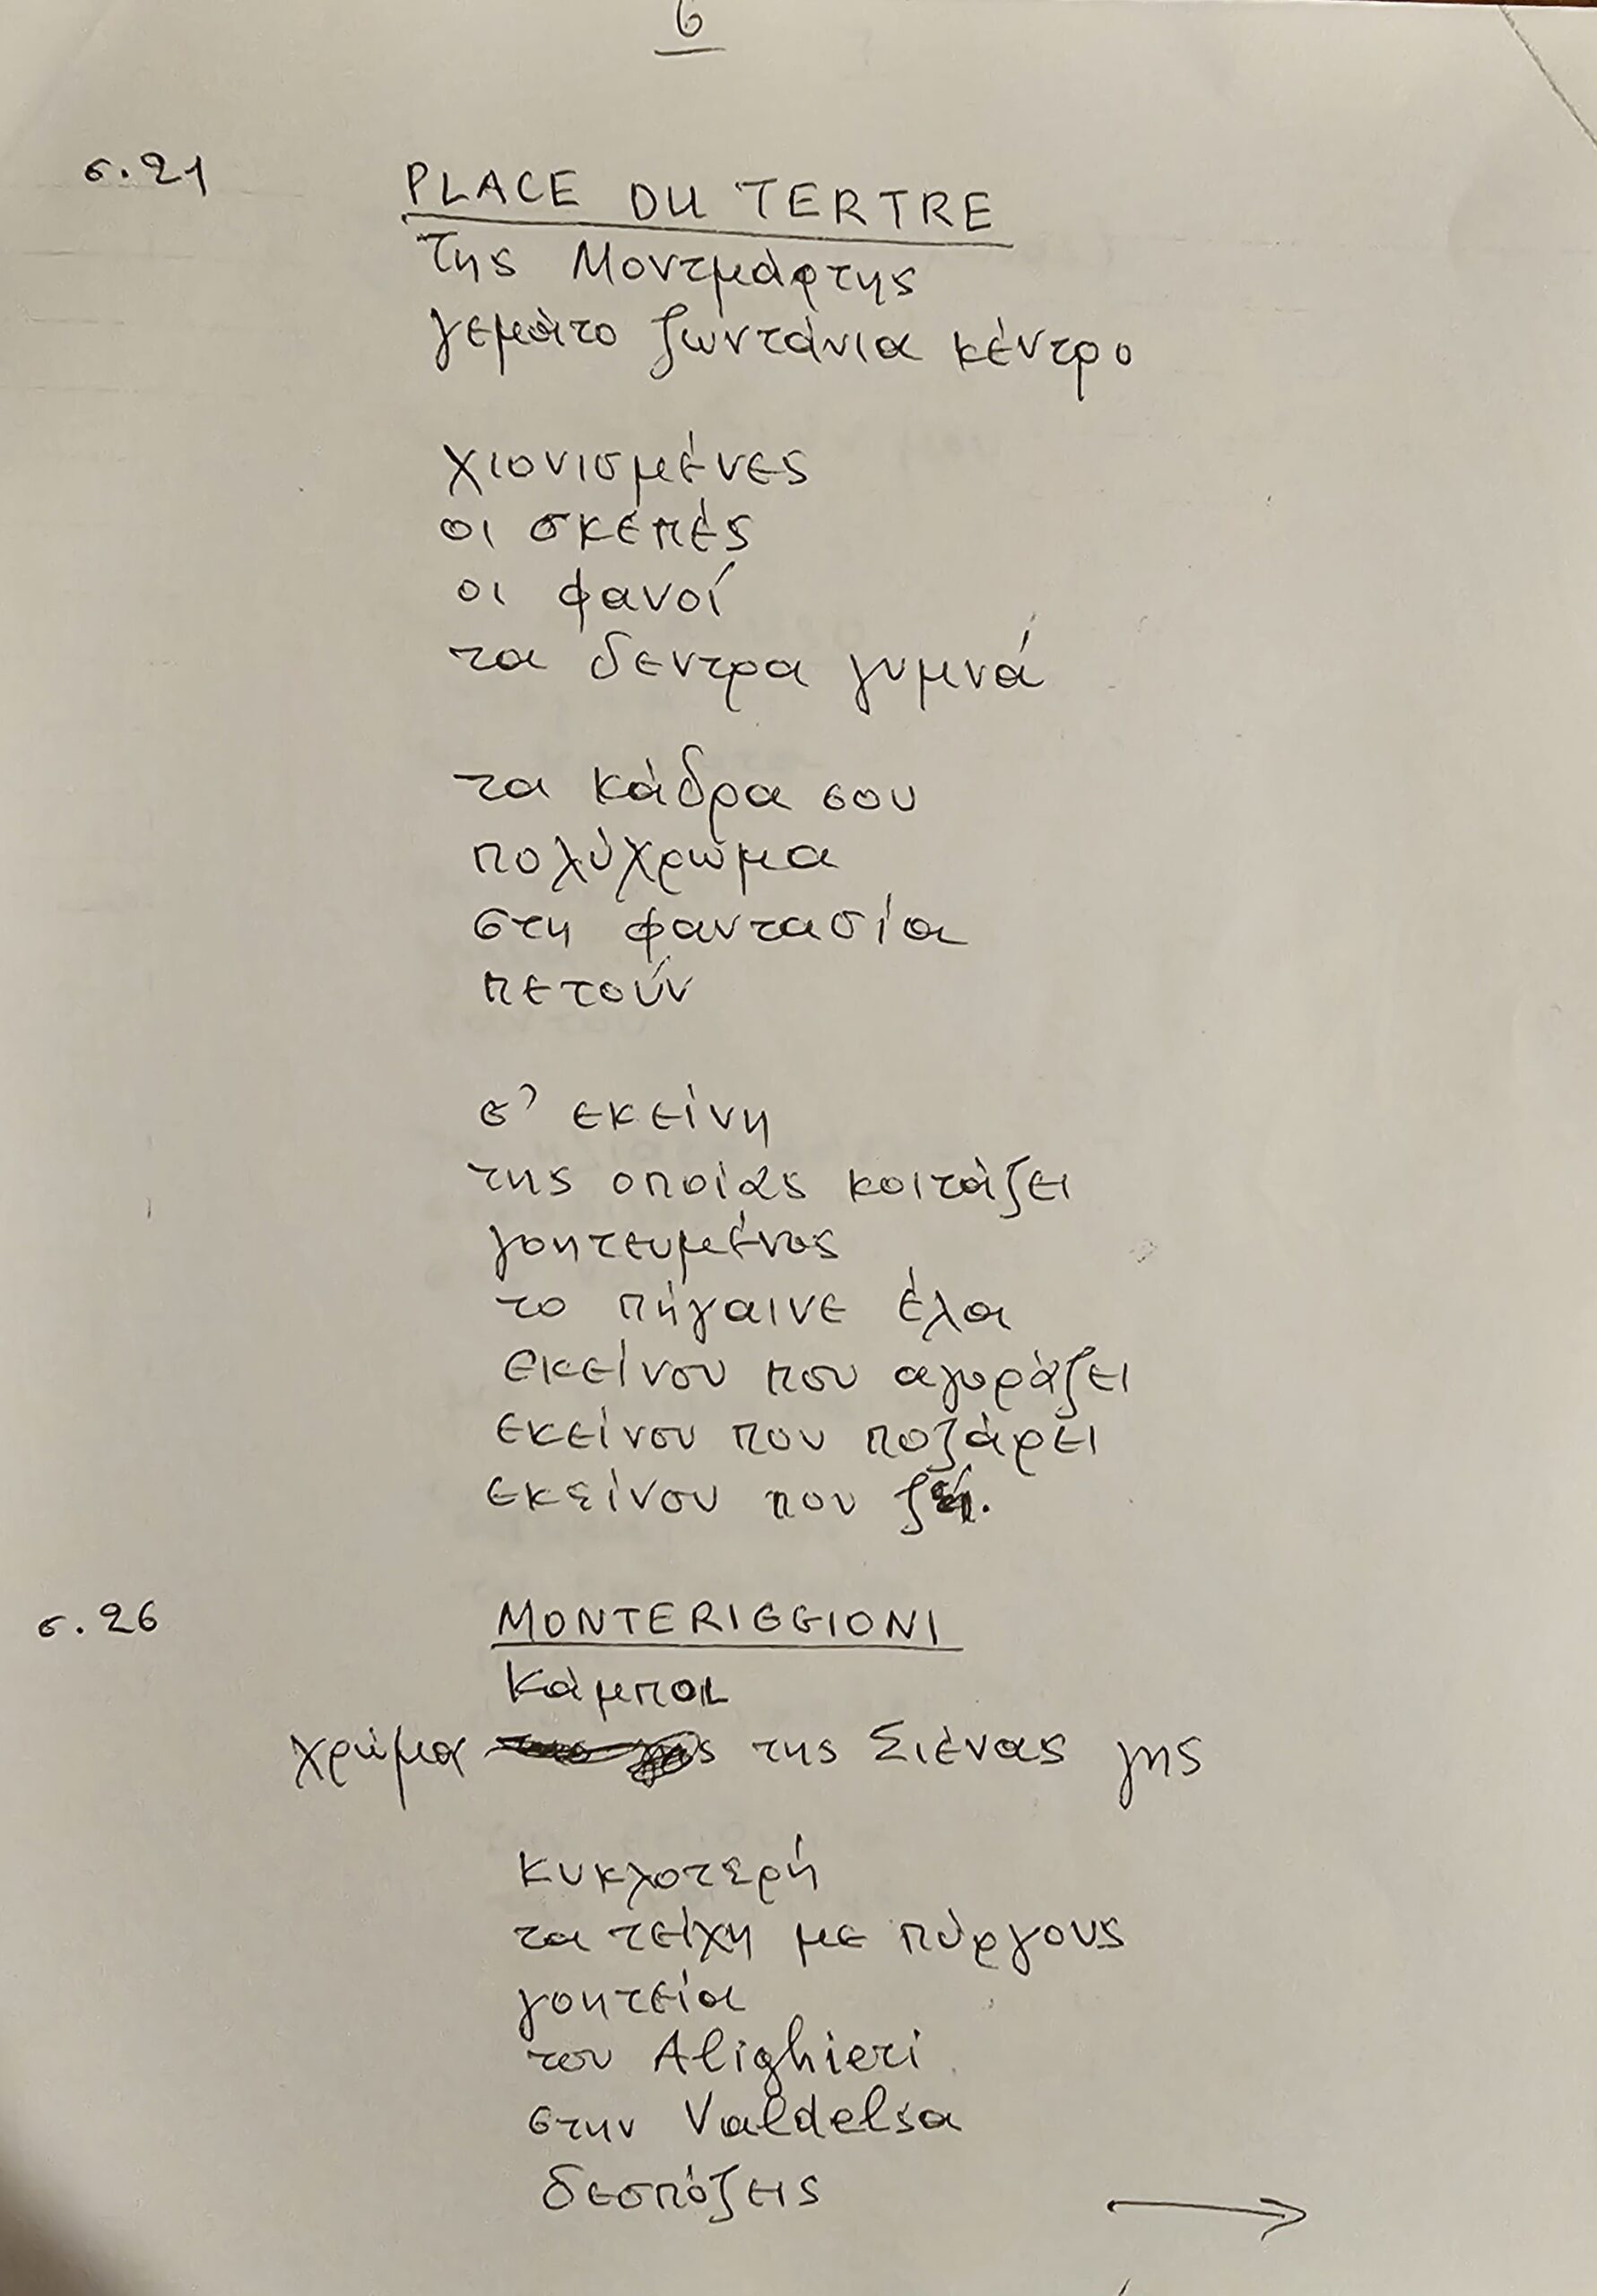 6
σ. 21
PLACE DU TERTRE
της Μοντμάρτης
γεμάτο ζωντάνια κέντρο
χιονισμένες
οι σκεπές
οι φανοί
τα δεντρα γυμνά
τα κάδρα σου
πολύχρωμα
στη φαντασία
πετούν
σ' εκείνη
της οποίας κοιτάζει
γοητευμένος
το πήγαινε έλα
εκείνου που αγοράζει
εκείνου που ποζάρει
εκείνου που
σ. 26
MONTERIGGIONI
Κάμποι
χρώμα της Σιένας γης
κυκλοτερή
τα τείχη με πύργους
γοητεία
του Alighieri
στην Valdelsa
δεσπόζεις
→